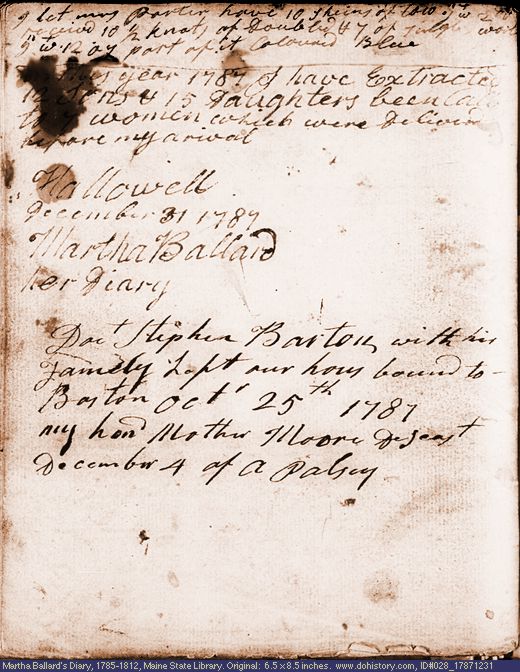 9 let mrs Porter have 10 skeins of tow y^n w^t 2
10 2 knots of Doubld & 7 of Single wool
y^n w^t 12 oz part of it Coloured Blue
this year 1787 I have Extracted
12 Sons & 15 Daughters been Calld
to 7 women which were Deliverd
before my arival
Hallowell
December 31 1787
Martha Ballard
her Diary
Doc^t Stephen Barton with his
Family Left our hous bound to
Boston oct^r 25^th 1787
my hon^d Mother Moore Deseast
December 4 of a Palsey
Martha Ballard's Diary, 1785-1812, Maine State Library. Original: 6.5 x 8.5 inches. www.dohistory.com, ID#028_17871231